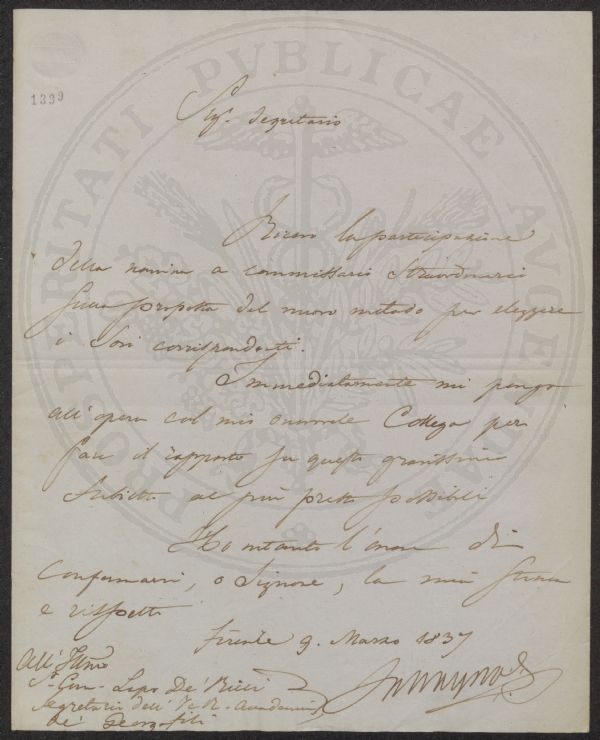 1399
PROSPERITATI PVBLICAE AVGENDAE
Sigr. Segretario
Ricevo la partecipazione
della nomina a commissario Straordinario
sulla proposta del nuovo metodo per eleggere
i Soci corrispondenti.
Immediatamente mi pongo
all'opera col mio onorevole Collega per
fare il rapporto su questo gravissimo
subietto al più presto possibile
Ho intanto l'onore di
confermarvi, o Signore, la mia stima
e rispetto
Firenze 9. Marzo 1837
All' Illmo
Sr. Lapo De' Ricci
Segretario dell' I. e R. Accademia
de' Georgofili